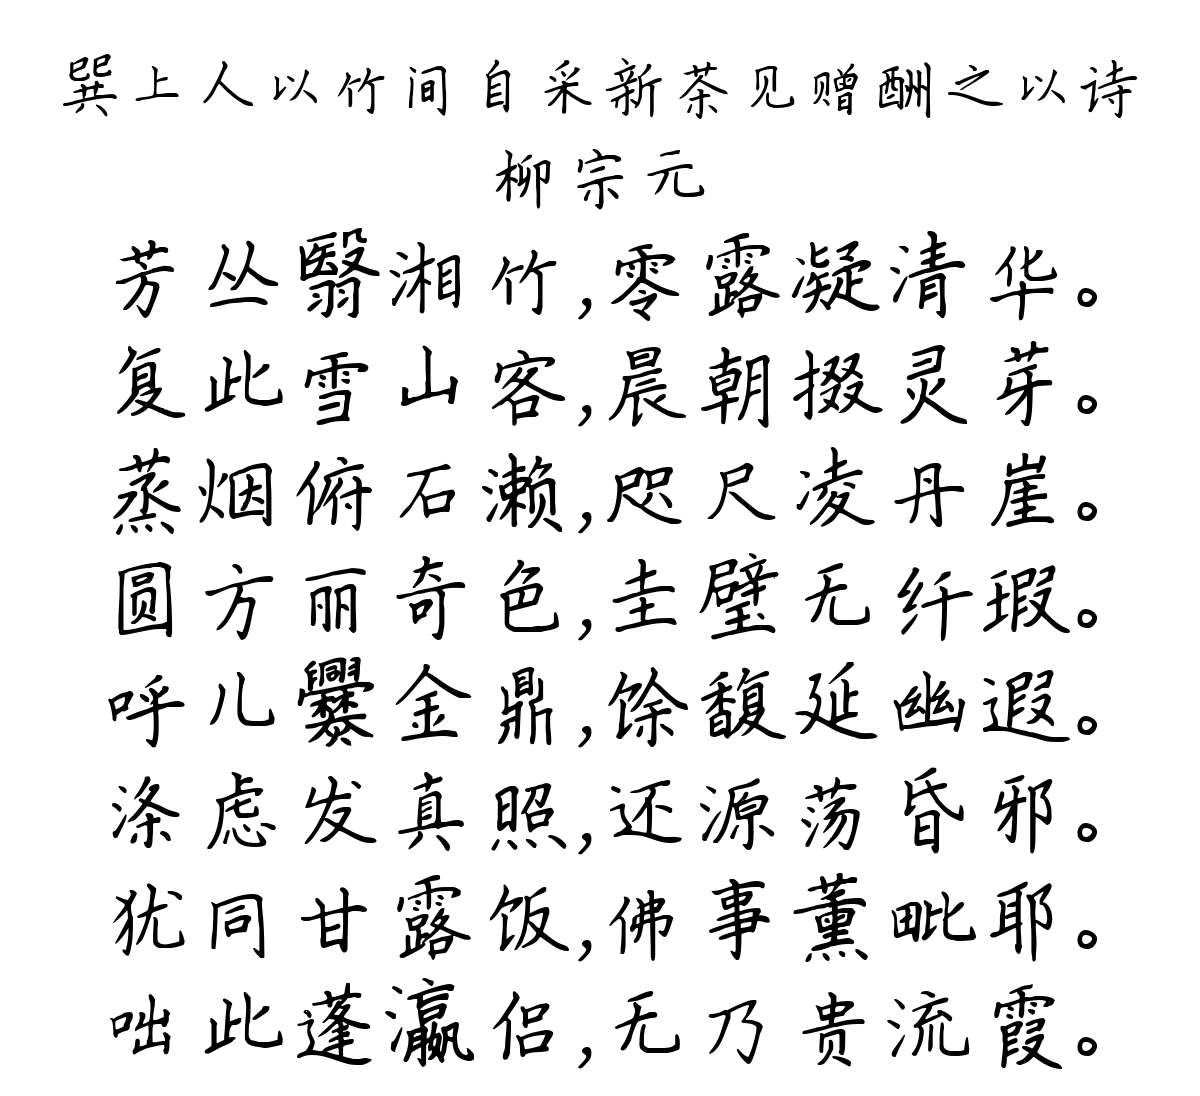 巽上人以竹间自采新茶见赠酬之以诗
柳宗元
芳丛翳湘竹,零露凝清华。
复此雪山客,晨朝掇灵芽。
蒸烟俯石濑,咫尺凌丹崖。
圆方丽奇色,圭璧无纤瑕。
呼儿爨金鼎,馀馥延幽遐。
涤虑发真照,还源荡昏邪。
犹同甘露饭,佛事薰毗耶。
咄此蓬瀛侣,无乃贵流霞。